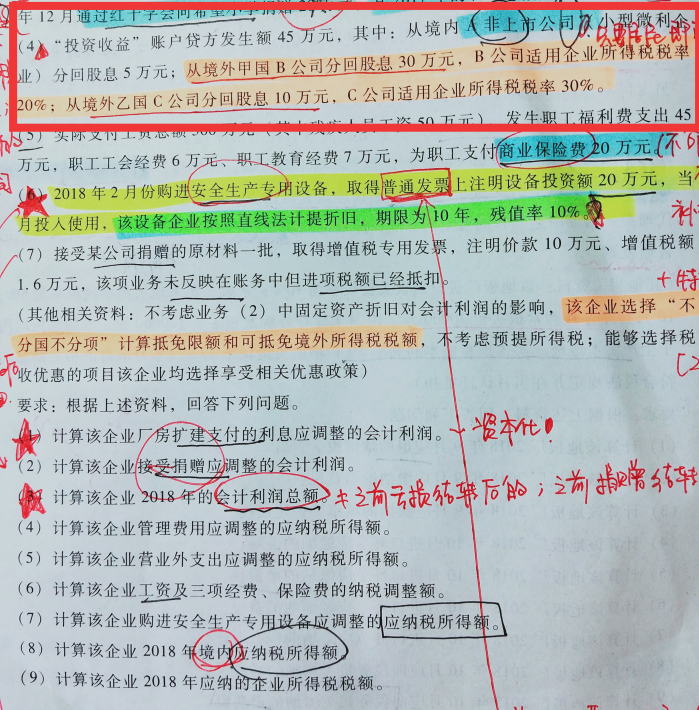 年12月通过红十字会向希望小学捐赠
(4)“投资收益”账户贷方发生额45万元，其中：从境内A非上市公司（小型微利企
业）分回股息5万元；从境外甲国B公司分回股息30万元，B公司适用企业所得税税率
20%；从境外乙国C公司分回股息10万元，C公司适用企业所得税税率30%。
(5) 实际支付工资总额500万元（其中残疾人员工资50万元），发生职工福利费支出45
万元，职工工会经费6万元、职工教育经费7万元，为职工支付商业保险费20万元。
(6) 2018年2月份购进安全生产专用设备，取得普通发票上注明设备投资额20万元，当
月投入使用，该设备企业按照直线法计提折旧，期限为10年，残值率10%。
(7) 接受某公司捐赠的原材料一批，取得增值税专用发票，注明价款10万元、增值税额
1.6万元，该项业务未反映在账务中但进项税额已经抵扣。
(其他相关资料：不考虑业务（2）中固定资产折旧对会计利润的影响，该企业选择“不
分国不分项”计算抵免限额和可抵免境外所得税税额，不考虑预提所得税；能够选择税
收优惠的项目该企业均选择享受相关优惠政策）
要求：根据上述资料，回答下列问题。
(1) 计算该企业厂房扩建支付的利息应调整的会计利润。 资本化！
(2) 计算该企业接受捐赠应调整的会计利润。
(3) 计算该企业2018年的会计利润总额。 之前亏损结转后的；之前捐赠结转
(4) 计算该企业管理费用应调整的应纳税所得额。
(5) 计算该企业营业外支出应调整的应纳税所得额。
(6) 计算该企业工资及三项经费、保险费的纳税调整额。
(7) 计算该企业购进安全生产专用设备应调整的应纳税所得额。
(8) 计算该企业2018年境内应纳税所得额。
(9) 计算该企业2018年应纳的企业所得税税额。